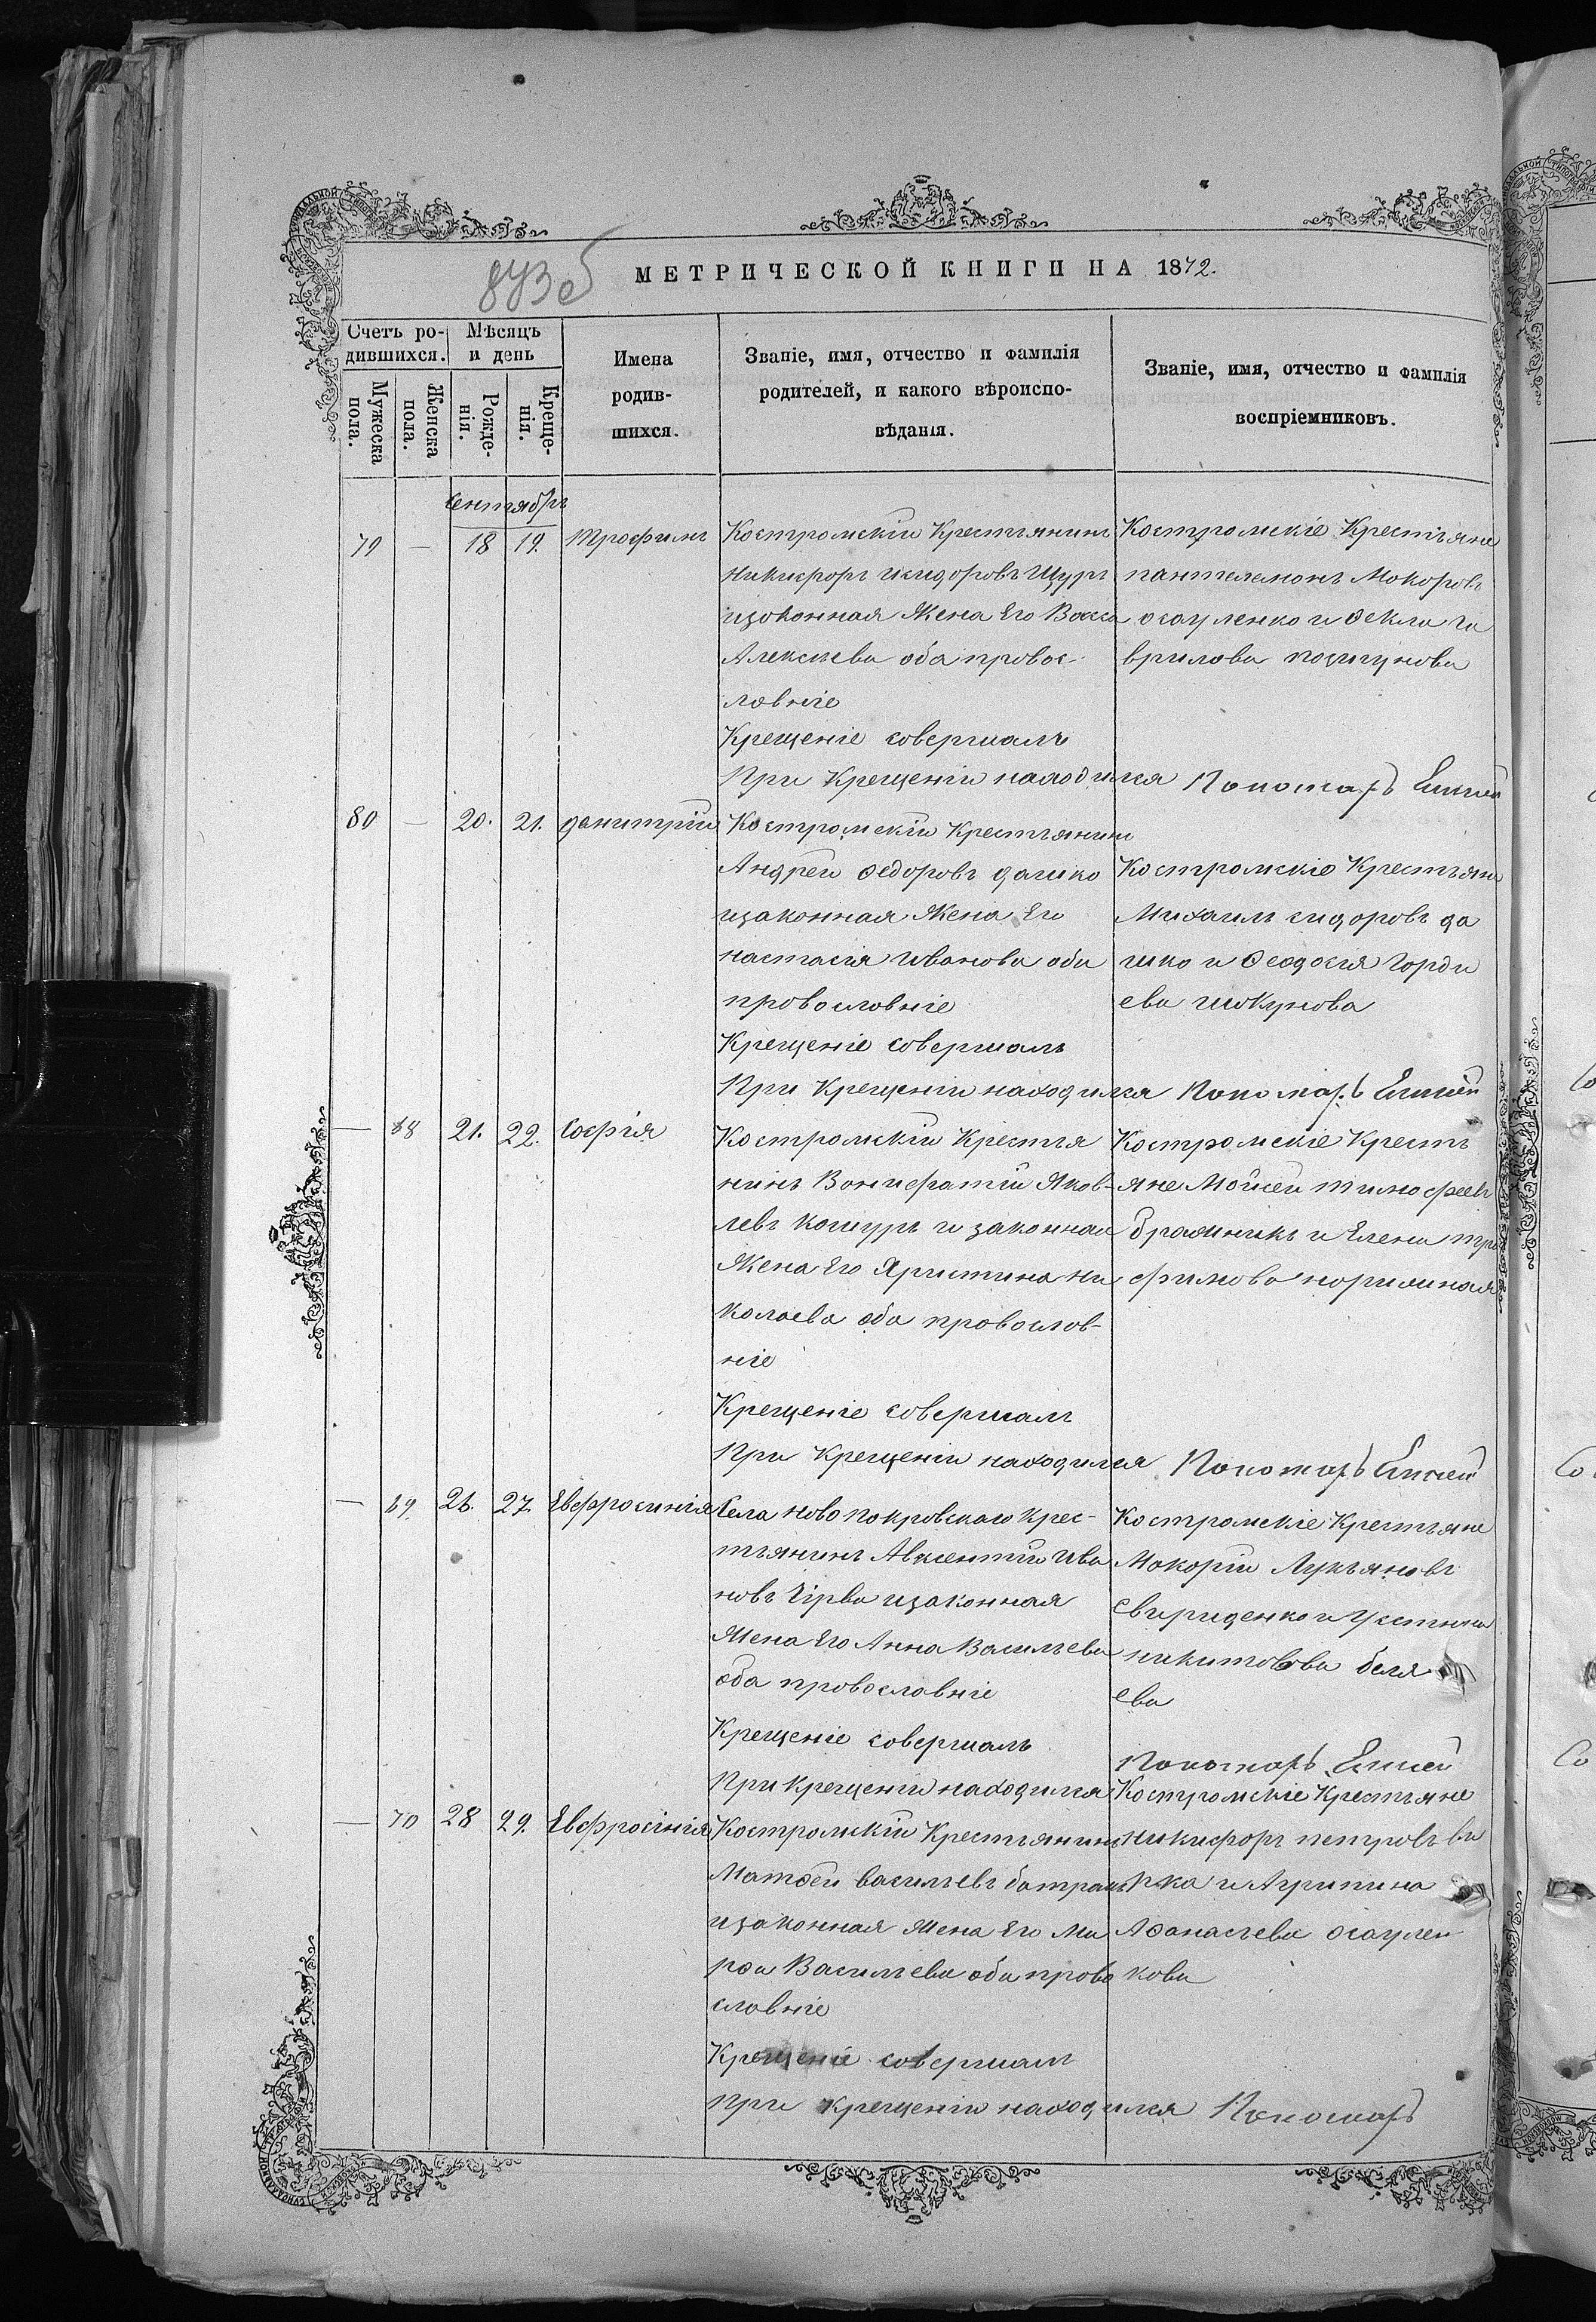 873 об
МЕТРИЧЕСКОЙ КНИГИ НА 1872.
Счетъ ро-
дившихся.
Мѣсяцъ
и день
Мужеска
пола.
Женска
пола.
Рожде-
нія.
Креще-
нія.
Имена
родив-
шихся.
Званіе, имя, отчество и фамилія
родителей, и какого вѣроиспо-
вѣданія.
Званіе, имя, отчество и фамилія
воспріемниковъ.
Сентябрь
79 — 18 19. Трофимъ
Костромскіи Крестьянинъ
Никифоръ исидоровъ Щуръ
изоконная Жена Его Васса
Алексѣева оба провос-
ловніе
Крещеніе совершалъ
При Крещеніи находился Пономарь
Костромскіе Крестьяне
пантелемонъ Мокоровъ
осауленко и Ѳекла га
врилова
80 — 20. 21. димитріи
Костромскіи Крестьянинъ
Андреи Ѳедоровъ дашко
изаконная Жена Его
настасія Иванова оба
провословніе
Крещеніе совершалъ
При Крещеніи находился Пономарь
Костромскіе Крестьяне
Михаилъ сидоровъ да
шко и Ѳеодосія Горди
ева шокунова
— 68 21. 22. Софія
Костромскіи Крестья
нинъ Вонифатіи Яков-
левъ кошуръ и законная
Жена Его Христина Ни
колаева оба провослов-
ніе
Крещеніе совершалъ
При Крещеніи находился Пономарь
Костромскіе Кресть
яне Моисеи тимофеевъ
бражникъ и Елена тро
фимова
— 69. 26. 27. Евфросинія
Села ново покровскаго Крес-
тьянинъ Авксентіи Ива
новъ Чірва изаконная
Жена Его Анна Васильева
оба провословніе
Крещеніе совершалъ
При Крещеніи находился
Костромскіе Крестьяне
Мокоріи Лукьяновъ
свириденко и Устинія
никитовова беля
ева
Пономарь
— 70 28 29. Евфросінія
Костромскіи Крестьянинъ
Матѳеи васильевъ батракъ
изаконная Жена Его Ма
рѳа Васильева оба право
словніе
Крещеніе совершалъ
При Крещеніи находился Пономарь
Костромскіе Крестьяне
никифоръ петровъ
и Агрипина
Аѳанасіева осаулен-
кова